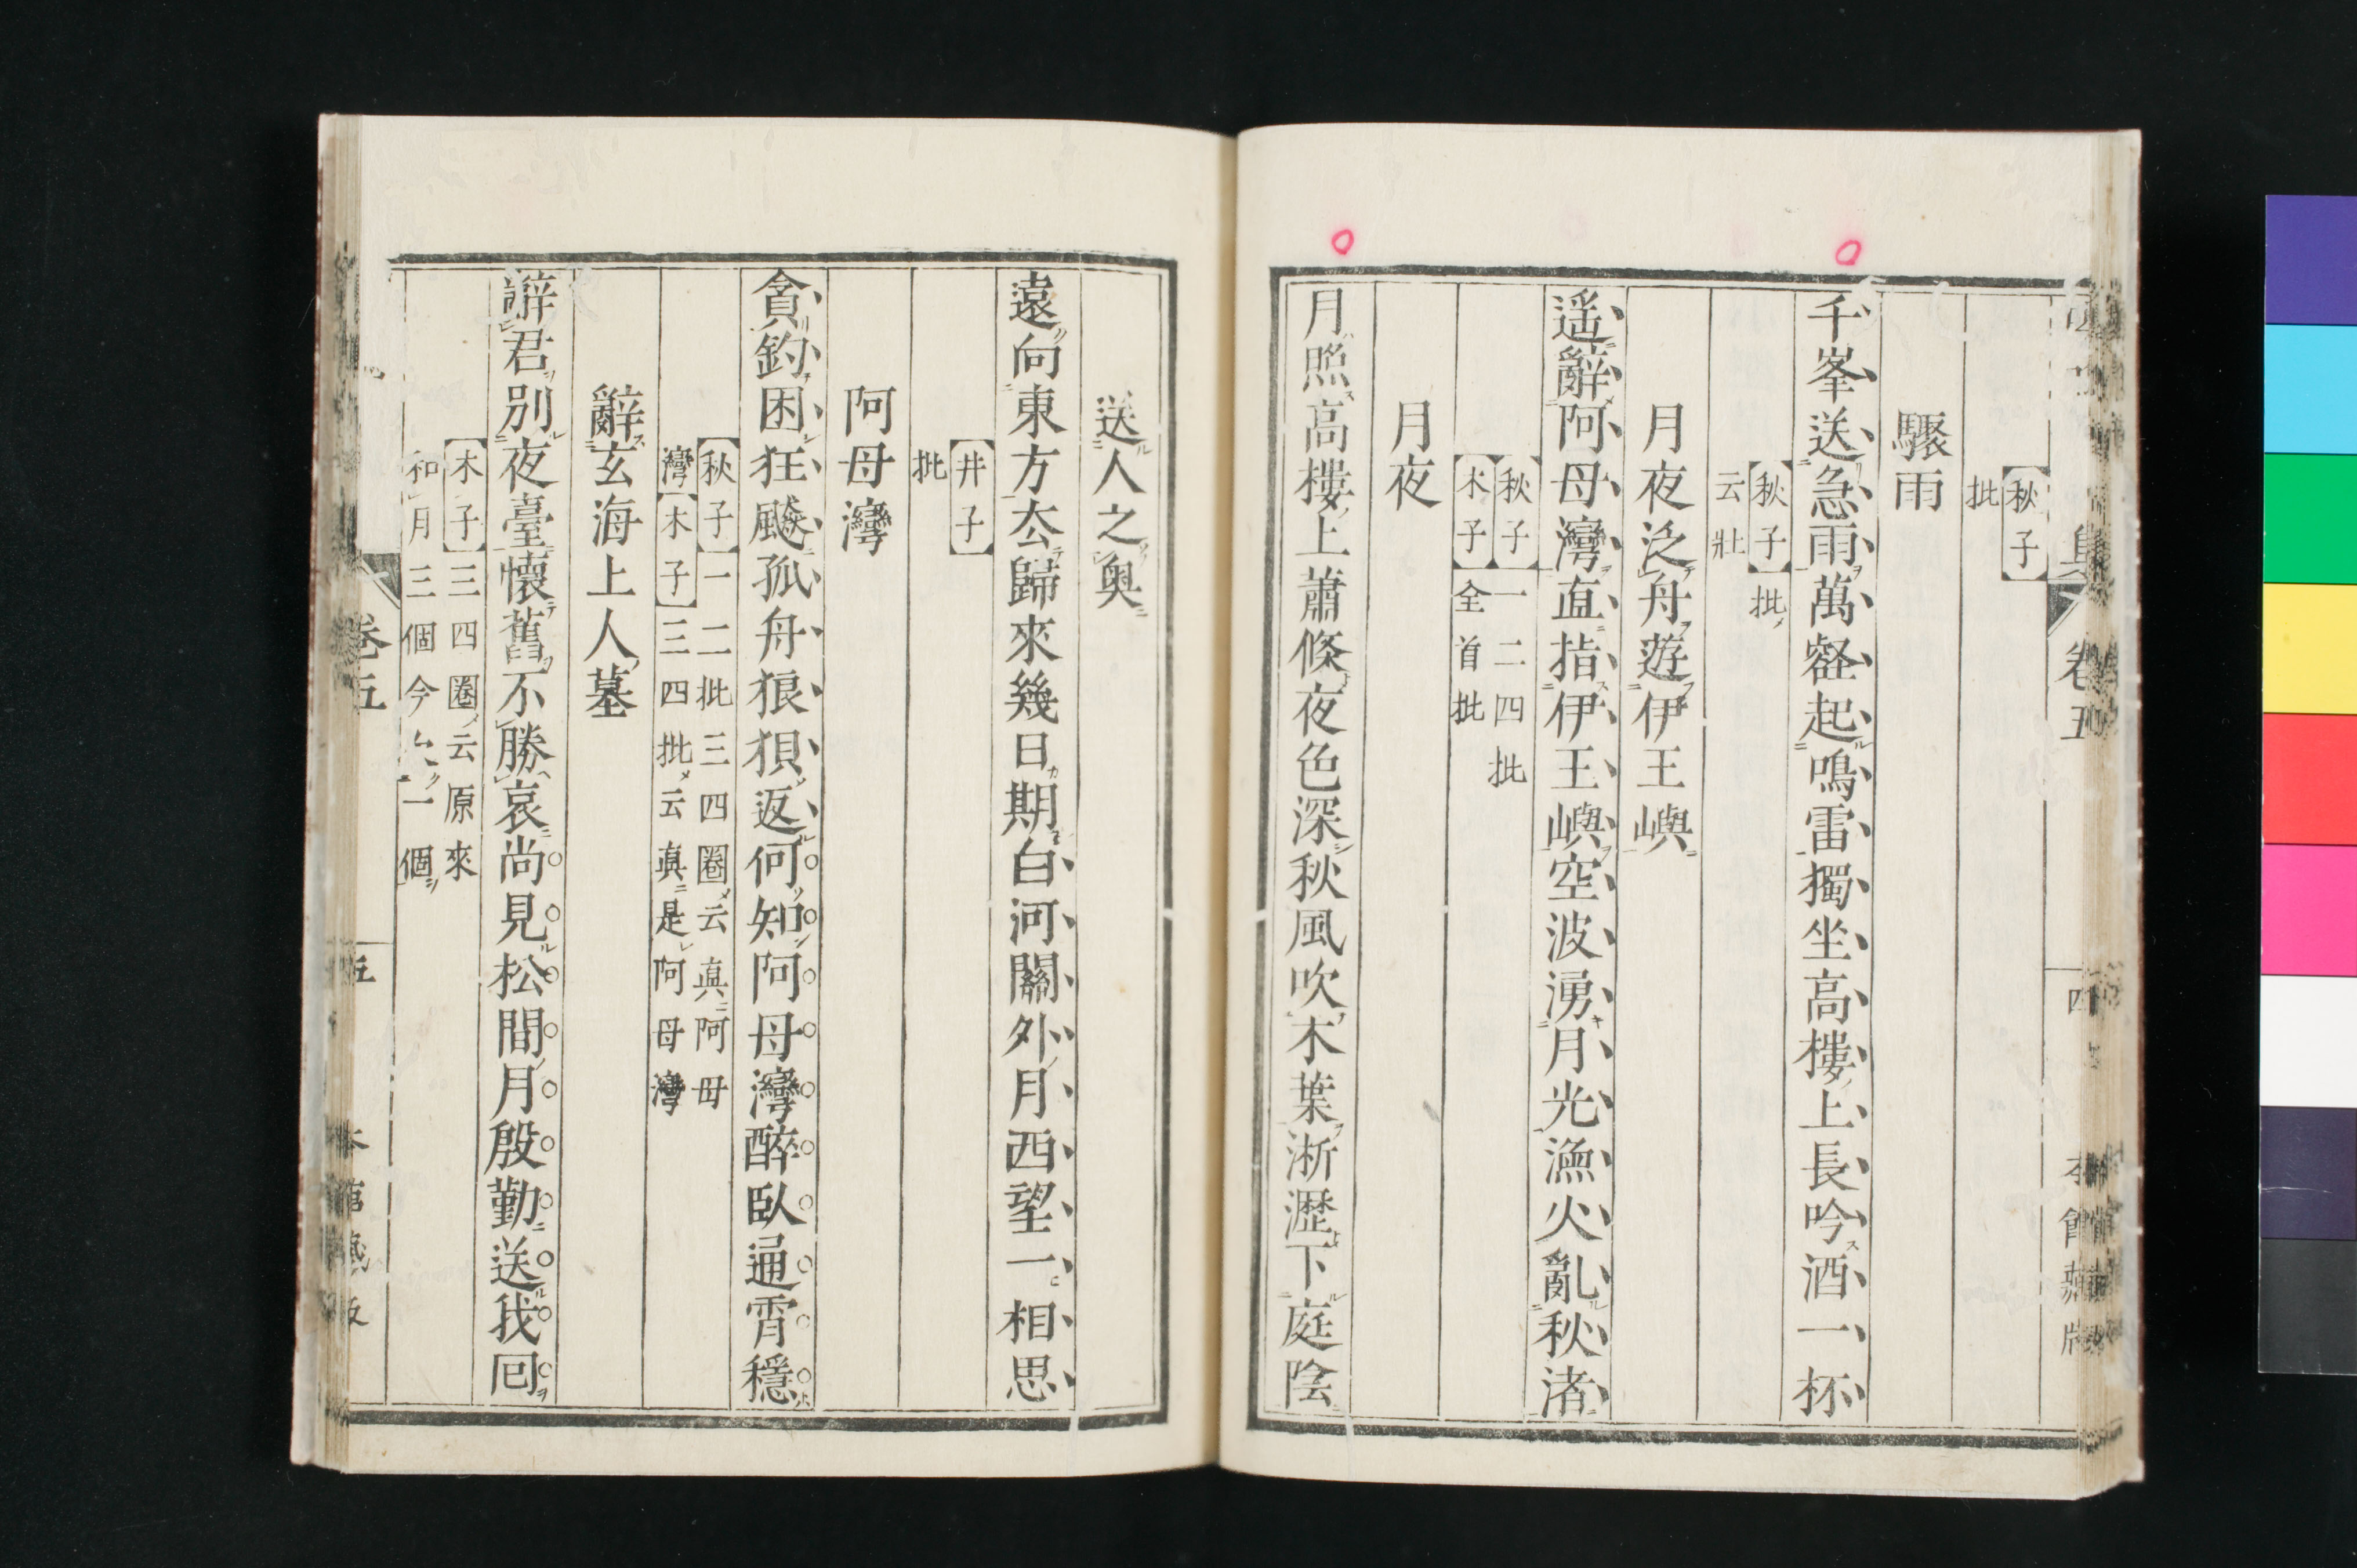 【秋子】
批
驟雨
千峯送急雨萬壑起鳴雷獨坐高樓上長吟酒一杯
【秋子】批
云壯
月夜泛舟遊伊王嶼
遥辭阿母灣直指伊王嶼空波湧月光漁火亂秋渚
【秋子】一二四批
【木子】全首批
月夜
月照高樓上蕭條夜色深秋風吹木葉淅瀝下庭陰
送人之奥
遠向東方厺歸來幾日期白河關外月西望一相思
【井子】
批
阿母灣
貪釣困狂飈孤舟狼狽返何知阿母灣醉臥通霄穩
【秋子】一二批三四圈云眞阿母
灣【木子】三四批云眞是阿母灣
辭玄海上人墓
辭君別夜臺懷舊不勝哀尚見松間月殷勤送我囘
【木子】三四圈云原來
和月三個今一個
卷五
五